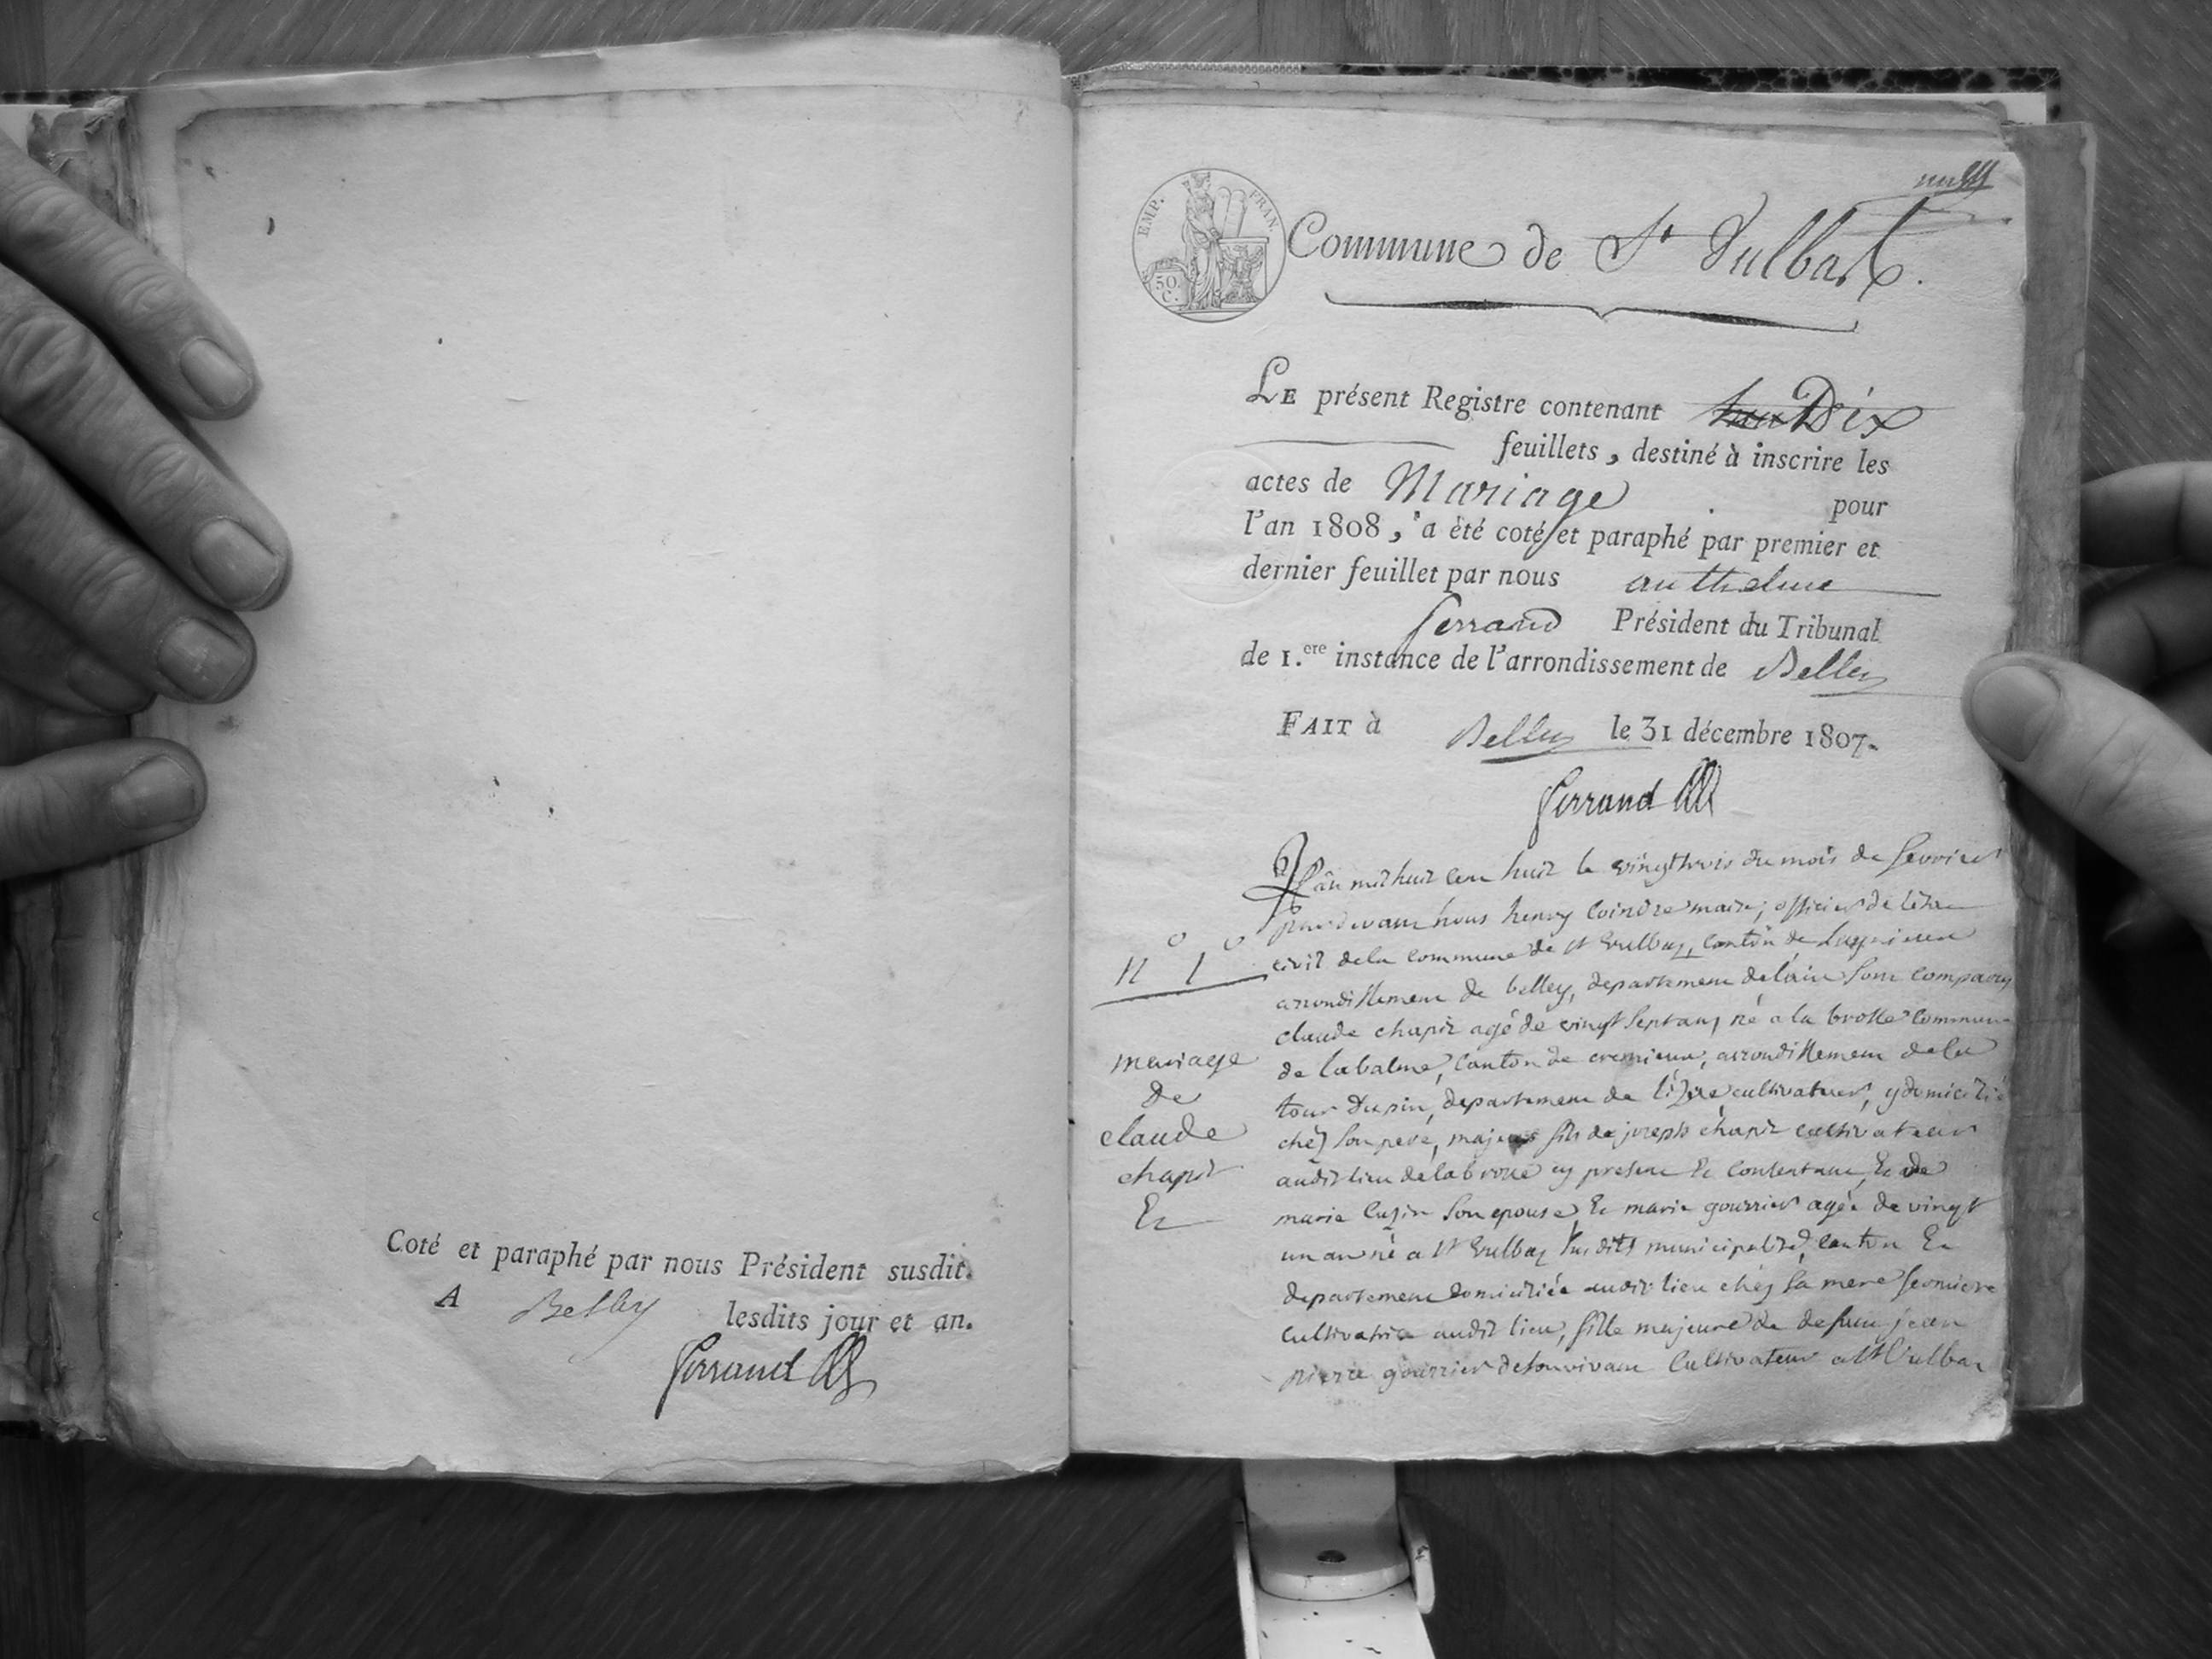 Coté et paraphé par nous Président susdit.
A Belley lesdits jour et an.
Ferrand
EMP. FRAN.
50.
C.
Commune de St Vulbas.
LE présent Registre contenant Dix
feuillets, destiné à inscrire les
actes de Mariage pour
l'an 1808, a été coté et paraphé par premier et
dernier feuillet par nous anthelme
ferrand Président du Tribunal
de 1.ere instance de l'arrondissement de Belley
FAIT à Belley le 31 décembre 1807.
Ferrand
n° 1°
mariage
de
claude
chapit
Et
L'an mil huit cent huit le vingt trois du mois de fevrier
pardevant nous henry Cointre maire, officier de létat
civil de la commune de st Vulbas, canton de Lagnieux
arrondissement de belley, departement delain sont comparus
claude chapit agé de vingt sept ans, né a la brosse commune
de la balme, canton de cremieux, arrondissement dela
tour dupin, departement de lizere cultivateur, y domicilié
chéz son pere, majeur fils de joseph chapit cultivateur
audit lieu dela brosse cy present et consentant, et de
marie Cuzin son epouse, Et marie gourrier agée de vingt
un an né a st Vulbas susdits municipalité, canton Et
departement domiciliée audit lieu chéz sa mere fermiere
cultivatrice audit lieu, fille majeure de defunt jean
pierre gourrier deson vivant cultivateur a st Vulbas